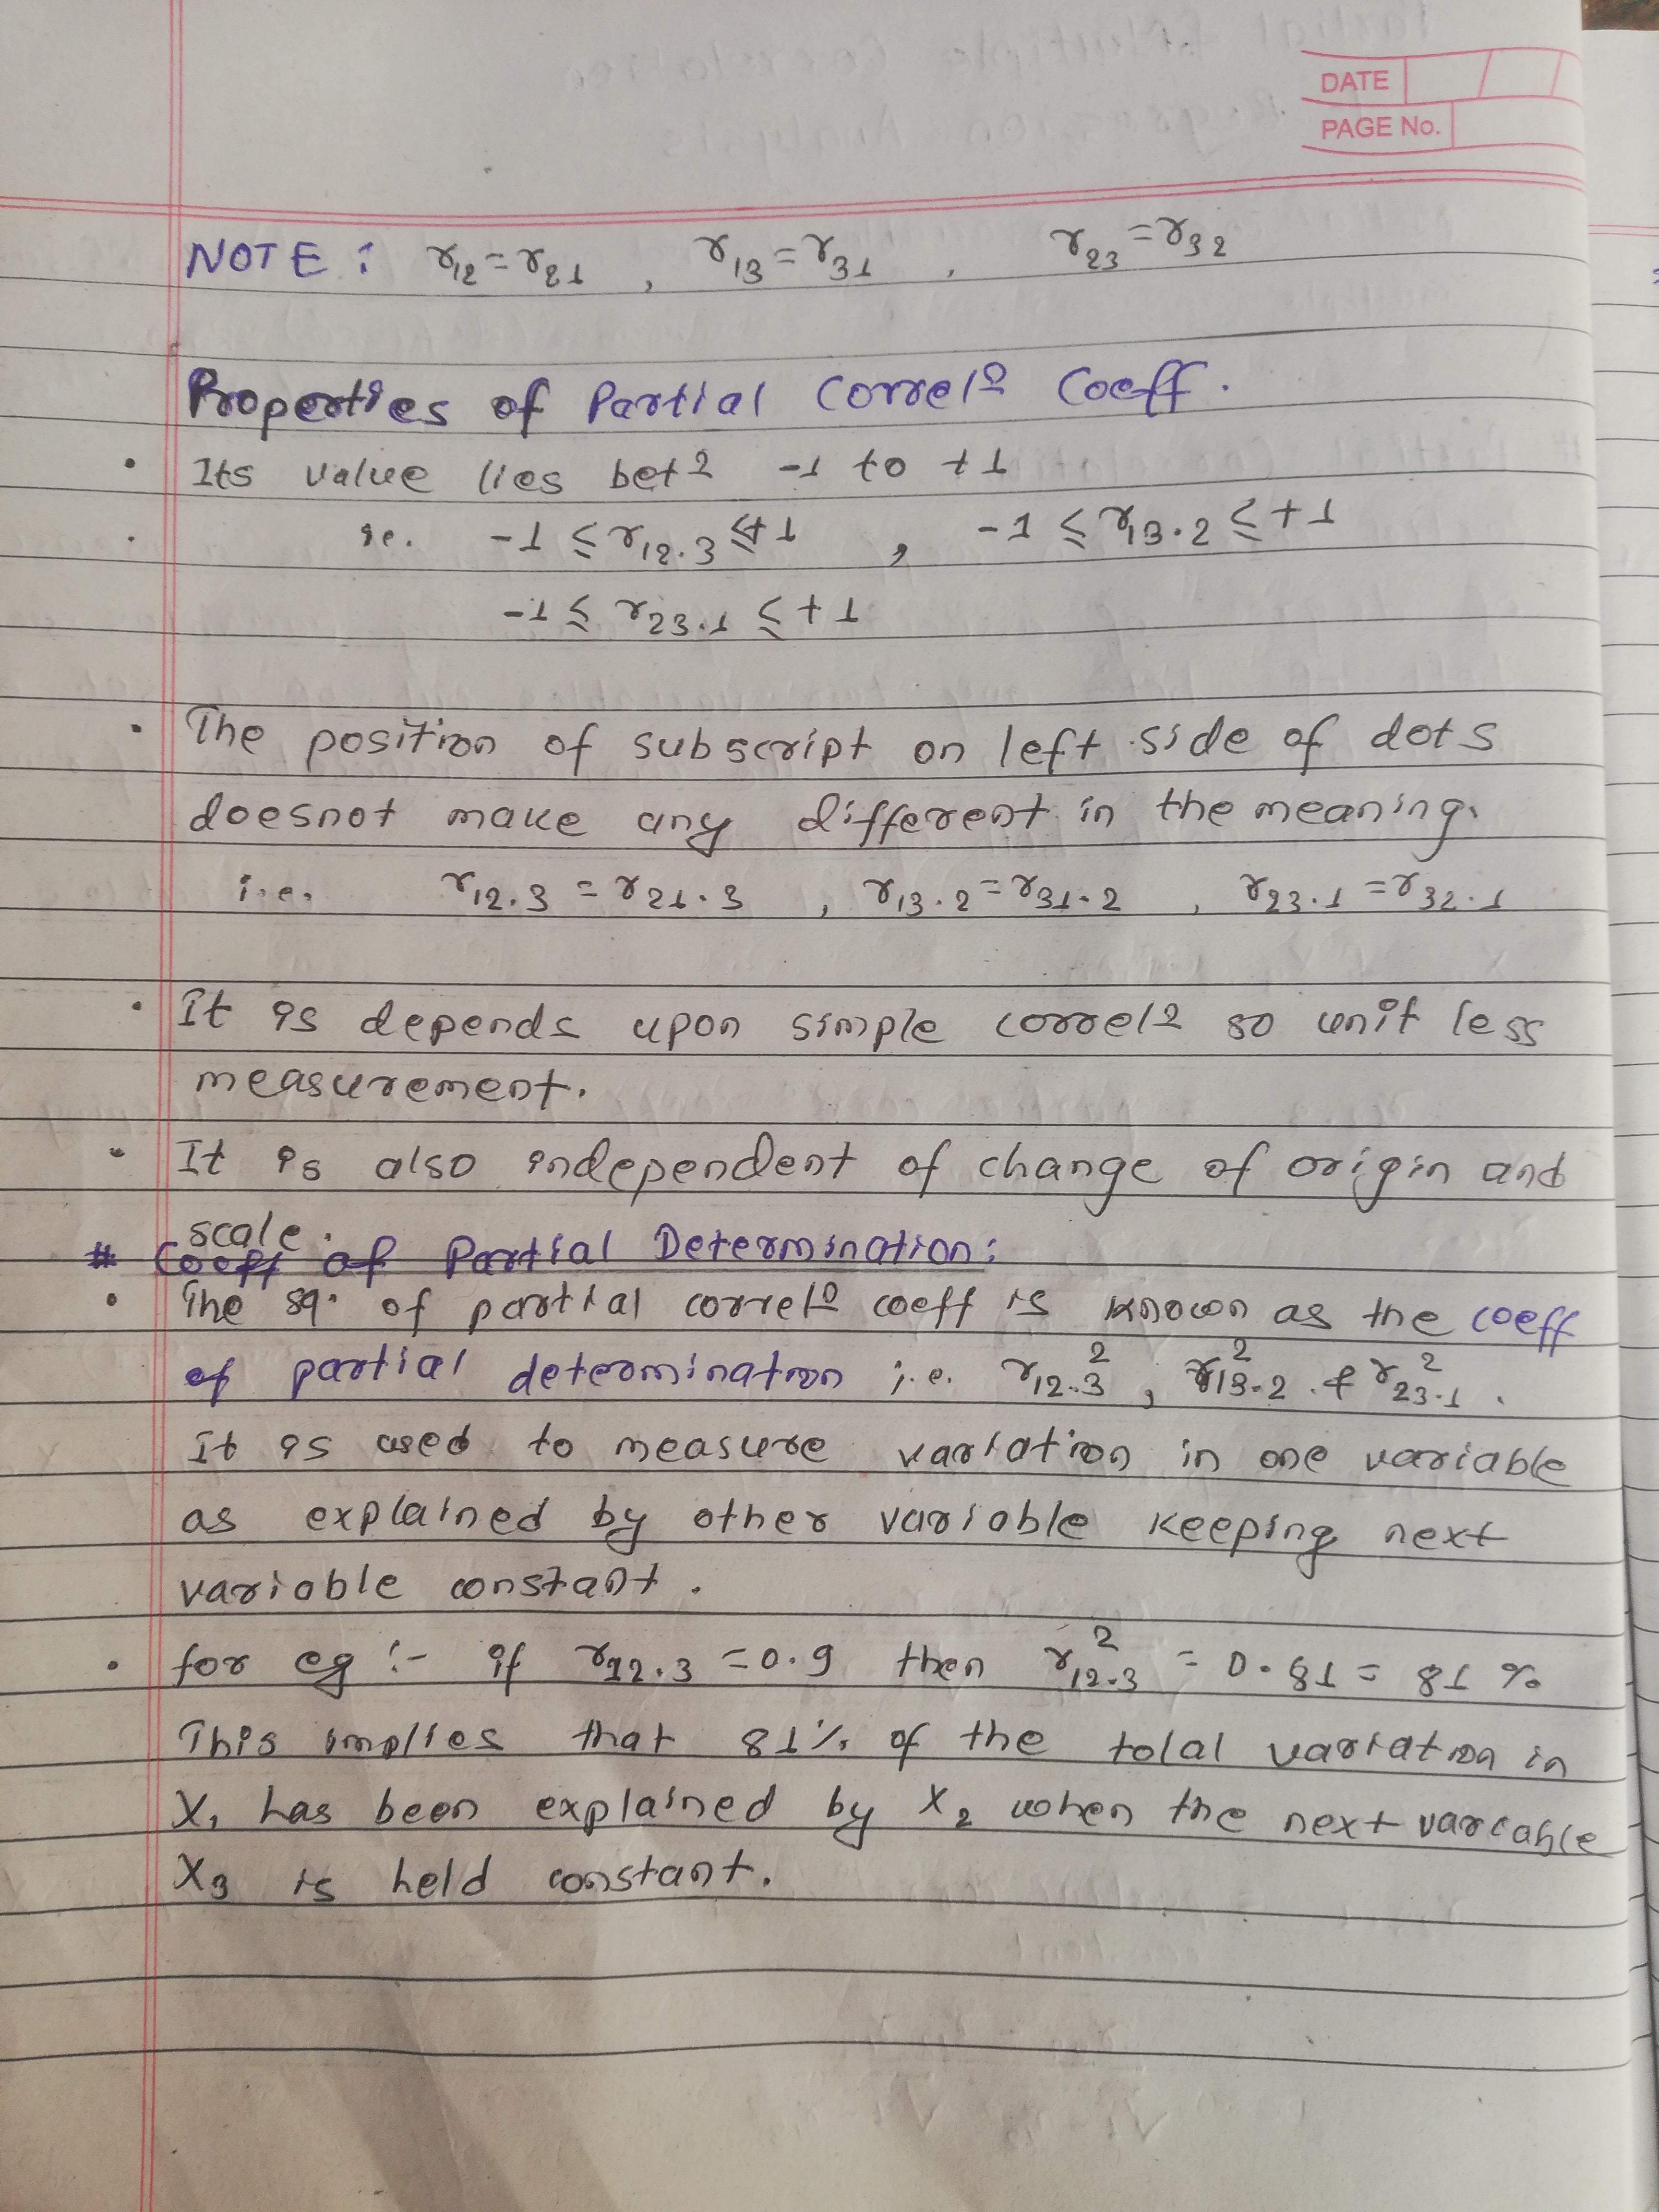 DATE
PAGE No.
NOTE : r12 = r21 , r13 = r31 , r23 = r32
Properties of Partial Correlⁿ Coeff.
• Its value lies betⁿ -1 to +1
ie. -1 ≤ r12.3 ≤ +1 , -1 ≤ r13.2 ≤ +1
-1 ≤ r23.1 ≤ +1
• The position of subscript on left side of dots
doesnot make any different in the meaning.
i.e. r12.3 = r21.3 , r13.2 = r31.2 , r23.1 = r32.1
• It is depends upon simple correlⁿ so unit less
measurement.
• It is also independent of change of origin and
scale.
# Coeff of Partial Determination:
• The sq. of partial correlⁿ coeff is known as the coeff
of partial determination i.e. r²12.3 , r²13.2 & r²23.1 .
It is used to measure variation in one variable
as explained by other variable keeping next
variable constant.
• for eg :- if r12.3 = 0.9 then r²12.3 = 0.81 = 81 %
This implies that 81% of the total variation in
X1 has been explained by X2 when the next variable
X3 is held constant.